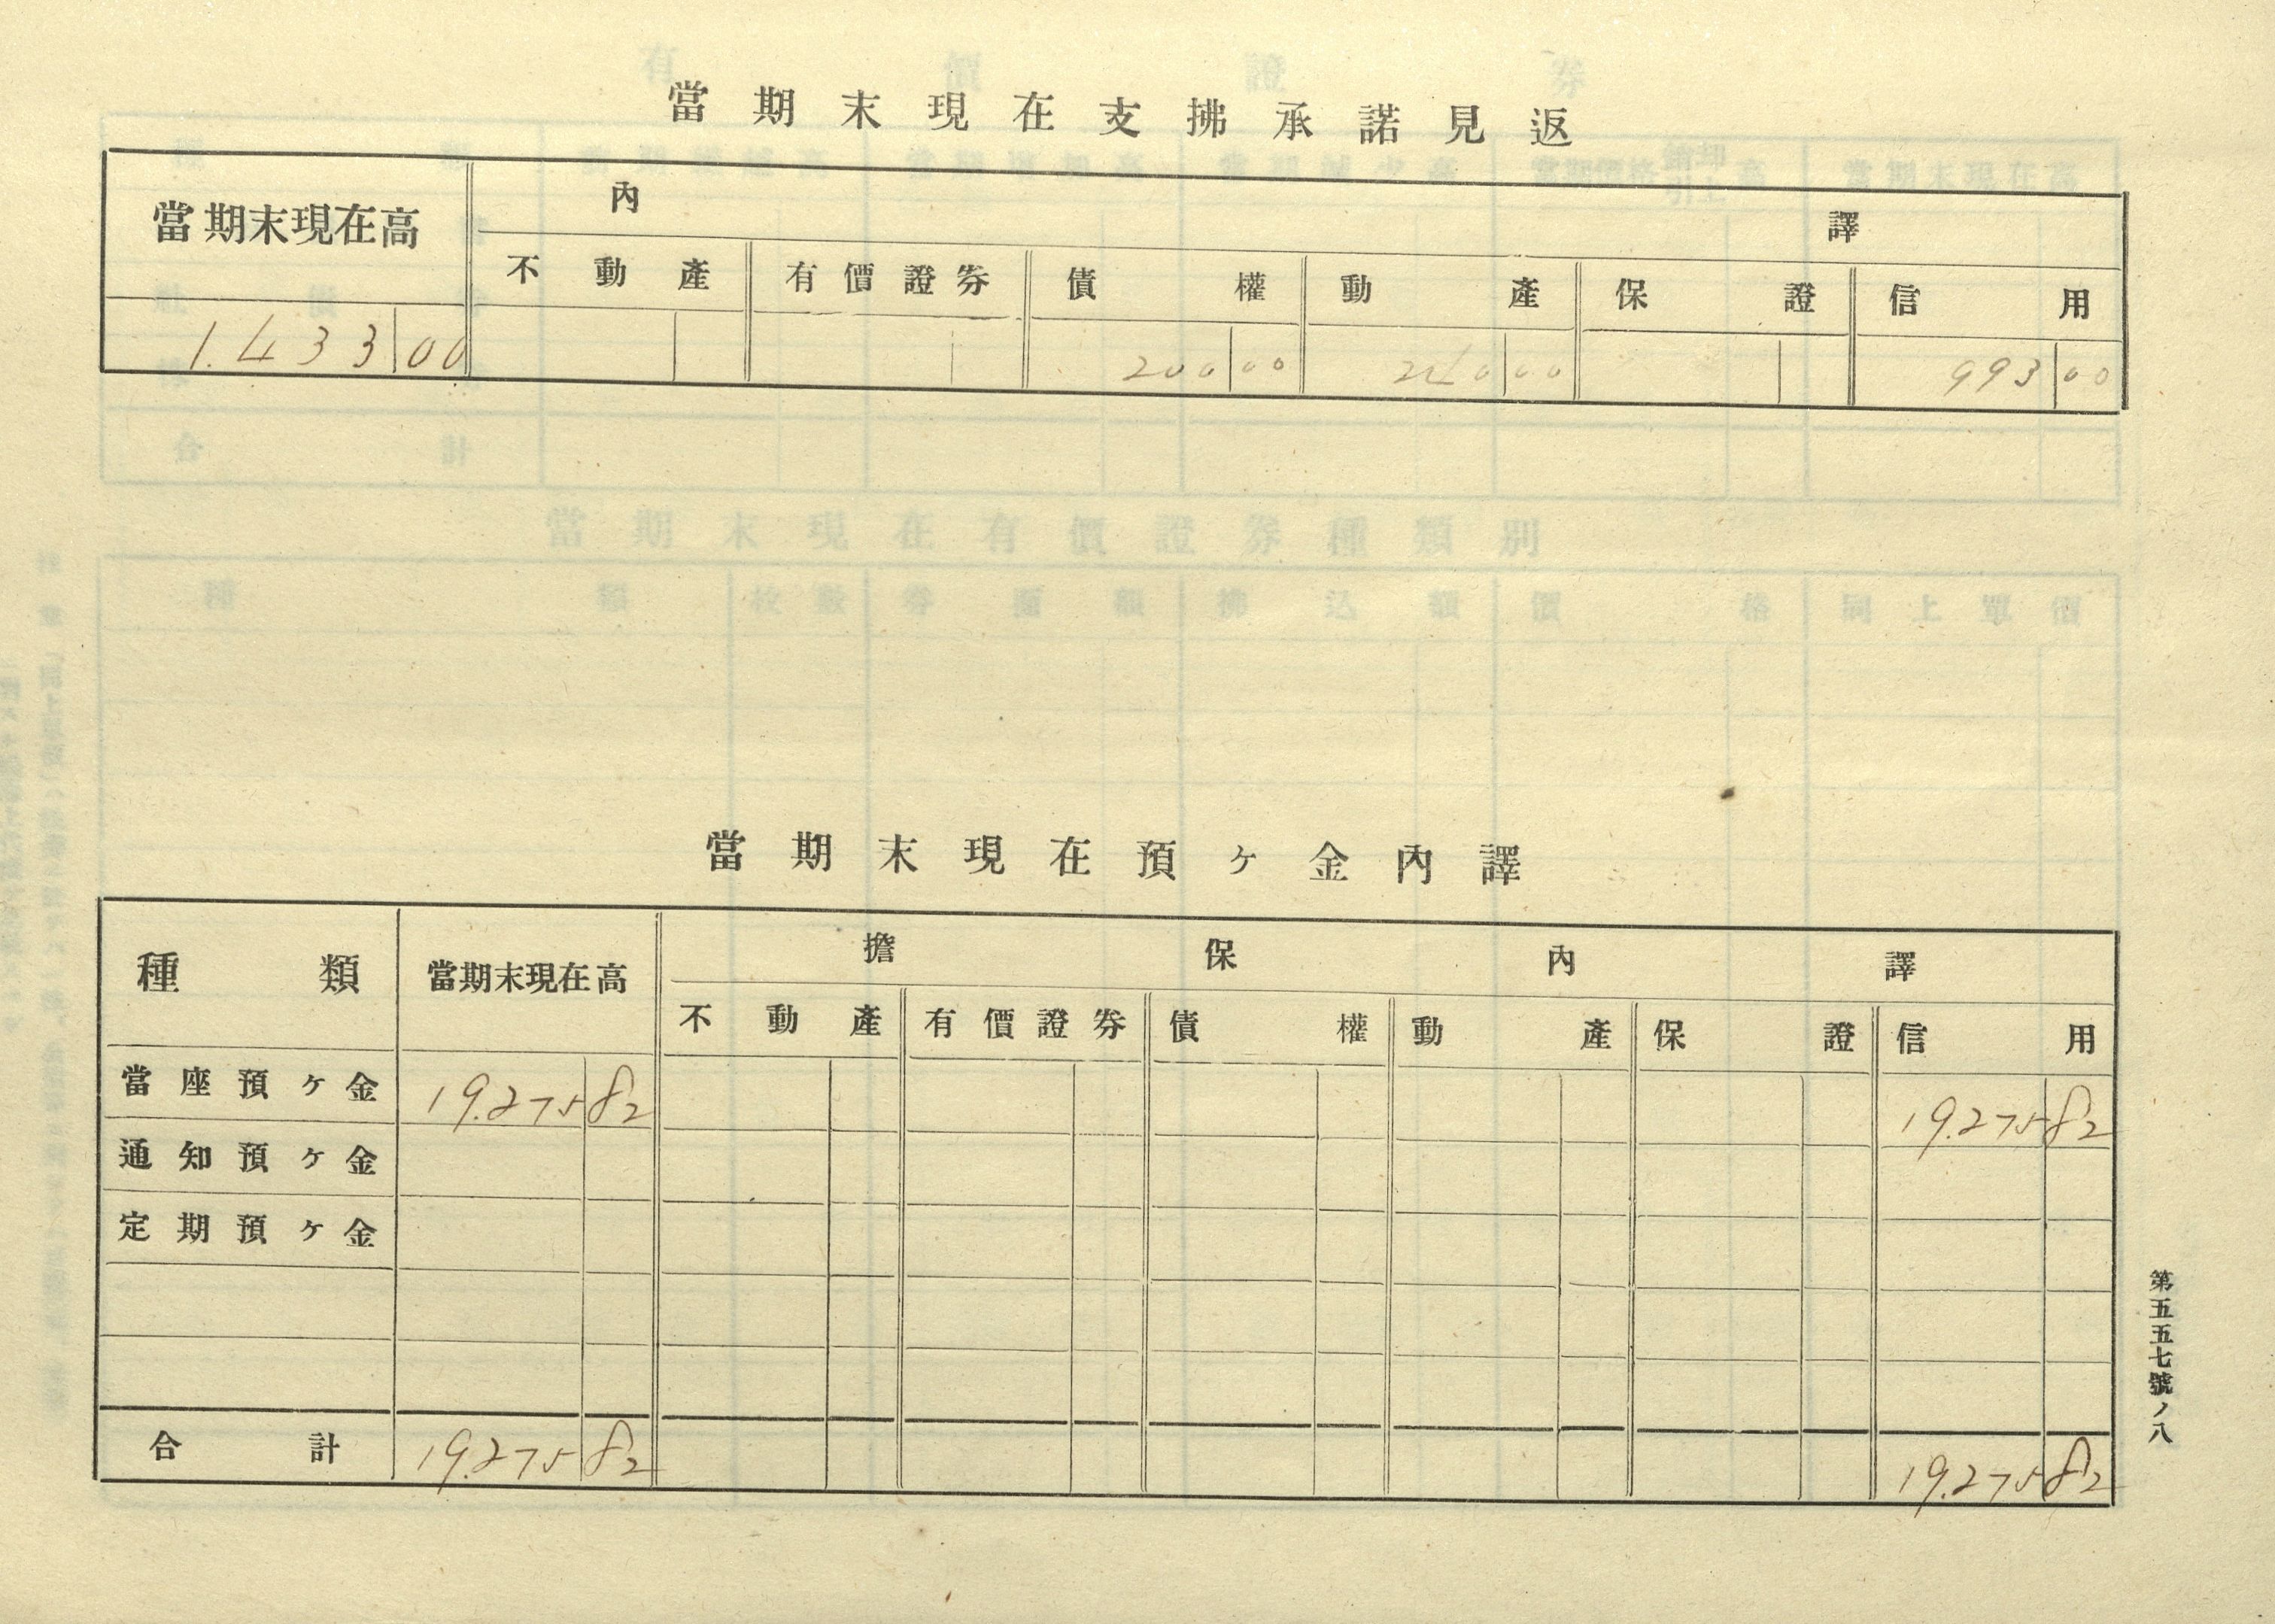 當期末現在支拂承諾見返
當期末現在高 內譯
不動產 有價證券 債權 動產 保證 信用
1.433 00 200 00 240 00 993 00
當期末現在預ヶ金內譯
種類 當期末現在高 擔保內譯
不動產 有價證券 債權 動產 保證 信用
當座預ヶ金 19.275 82 19.275 82
通知預ヶ金
定期預ヶ金
合計 19.275 82 19.275 82
第五五七號ノ八